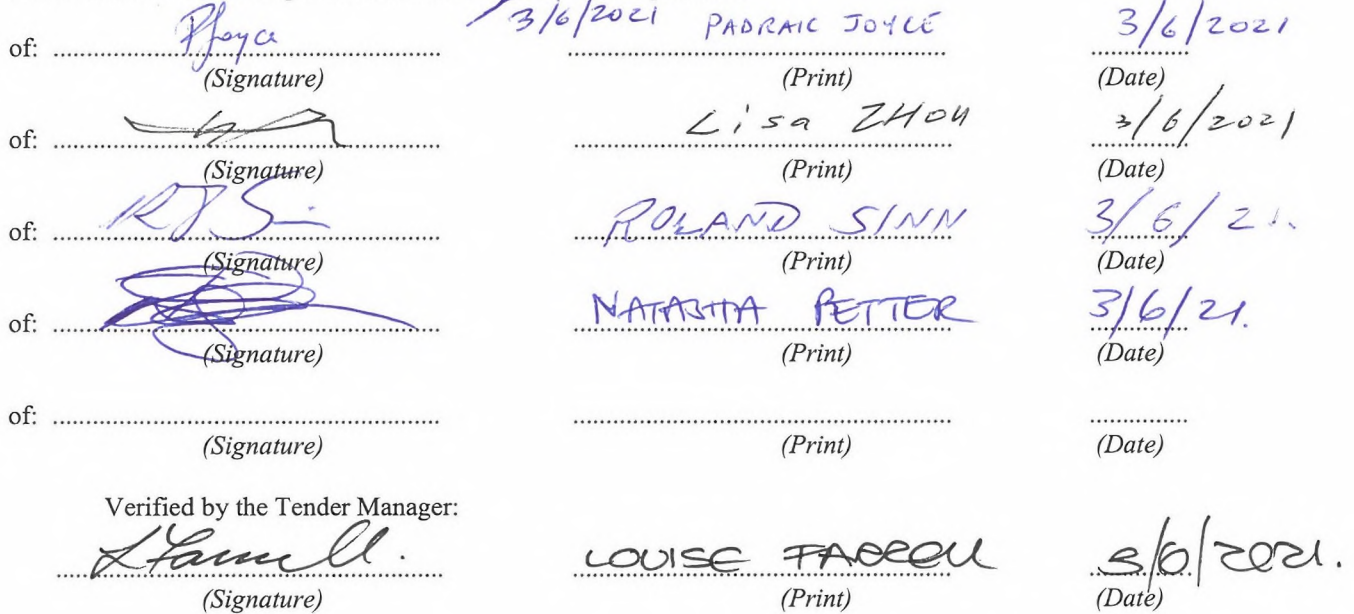 3/6/2021 PADRAIC JOYCE 3/6/2021
of: PJoyce
(Signature) (Print) (Date)
Lisa ZHOU 3/6/2021
of:
(Signature) (Print) (Date)
of: ROLAND SINN 3/6/21.
(Signature) (Print) (Date)
of: NATASHA PETTER 3/6/21.
(Signature) (Print) (Date)
of:
(Signature) (Print) (Date)
Verified by the Tender Manager:
LFarrell. LOUISE FARRELL 3/6/2021.
(Signature) (Print) (Date)